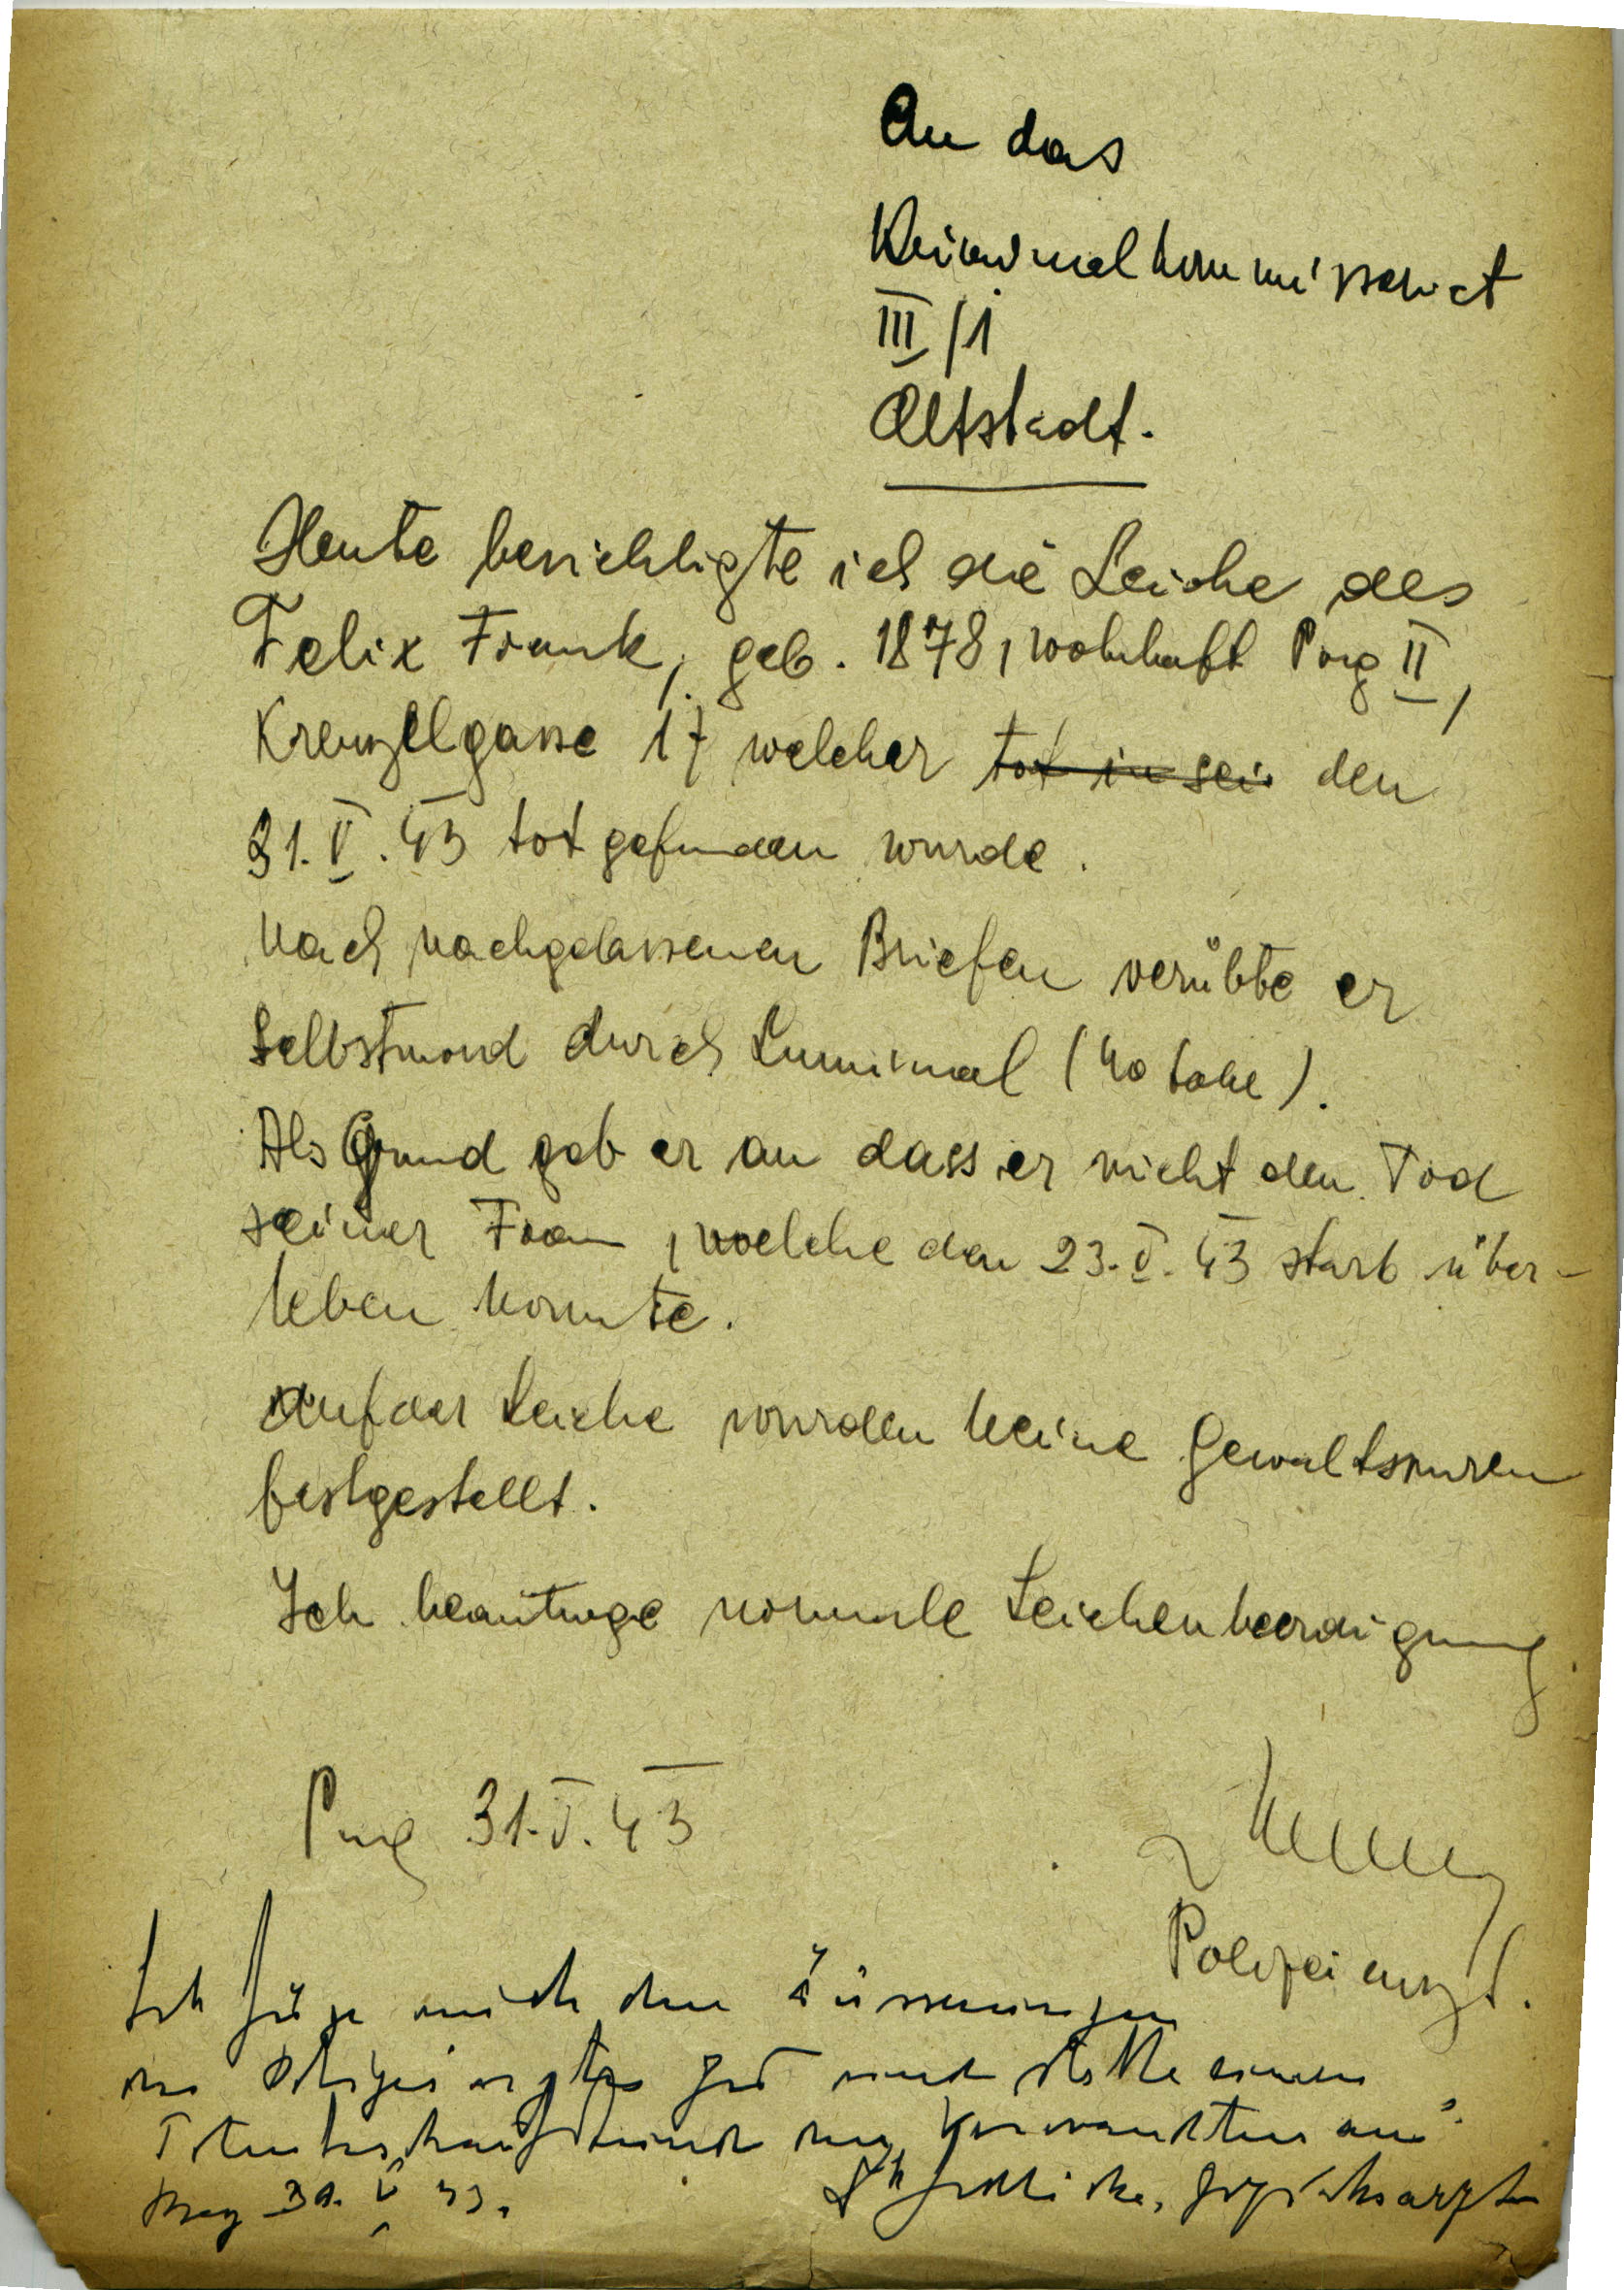 An das
Kriminalkommissariat
III/1
Altstadt.
Heute besichtigte ich die Leiche des
Felix Frank, geb. 1878, wohnhaft Prag II,
Kreuzelgasse 17 welcher tot in sei den
31. V. 43 tot gefunden wurde.
Nach nachgelassenen Briefen verübte er
Selbstmord durch Luminal (40 tabl).
Als Grund gab er an dass er nicht den Tod
seiner Frau, welche den 23. V. 43 starb über-
leben konnte.
Auf der Leiche wurden keine Gewaltspuren
festgestellt.
Ich beantrage normale Leichenbeerdigung
Prag 31. V. 43
Polizeiarzt.
Ich füge mich den Äusserungen
Polizeiarztes und stelle einen
Verwandten aus.
Prag 31. V 43.